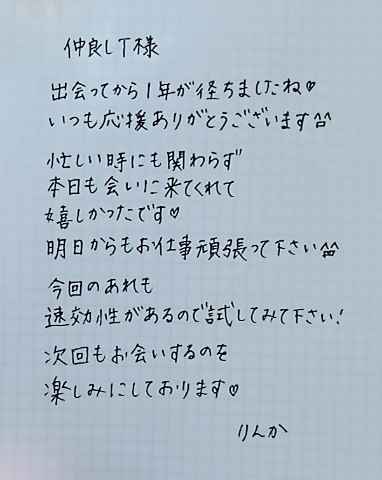 仲良しT様
出会ってから1年が経ちましたね♡
いつも応援ありがとうございます^^
忙しい時にも関わらず
本日も会いに来てくれて
嬉しかったです♡
明日からもお仕事頑張って下さい^^
今回のあれも
速効性があるので試してみて下さい!
次回もお会いするのを
楽しみにしております♡
りんか